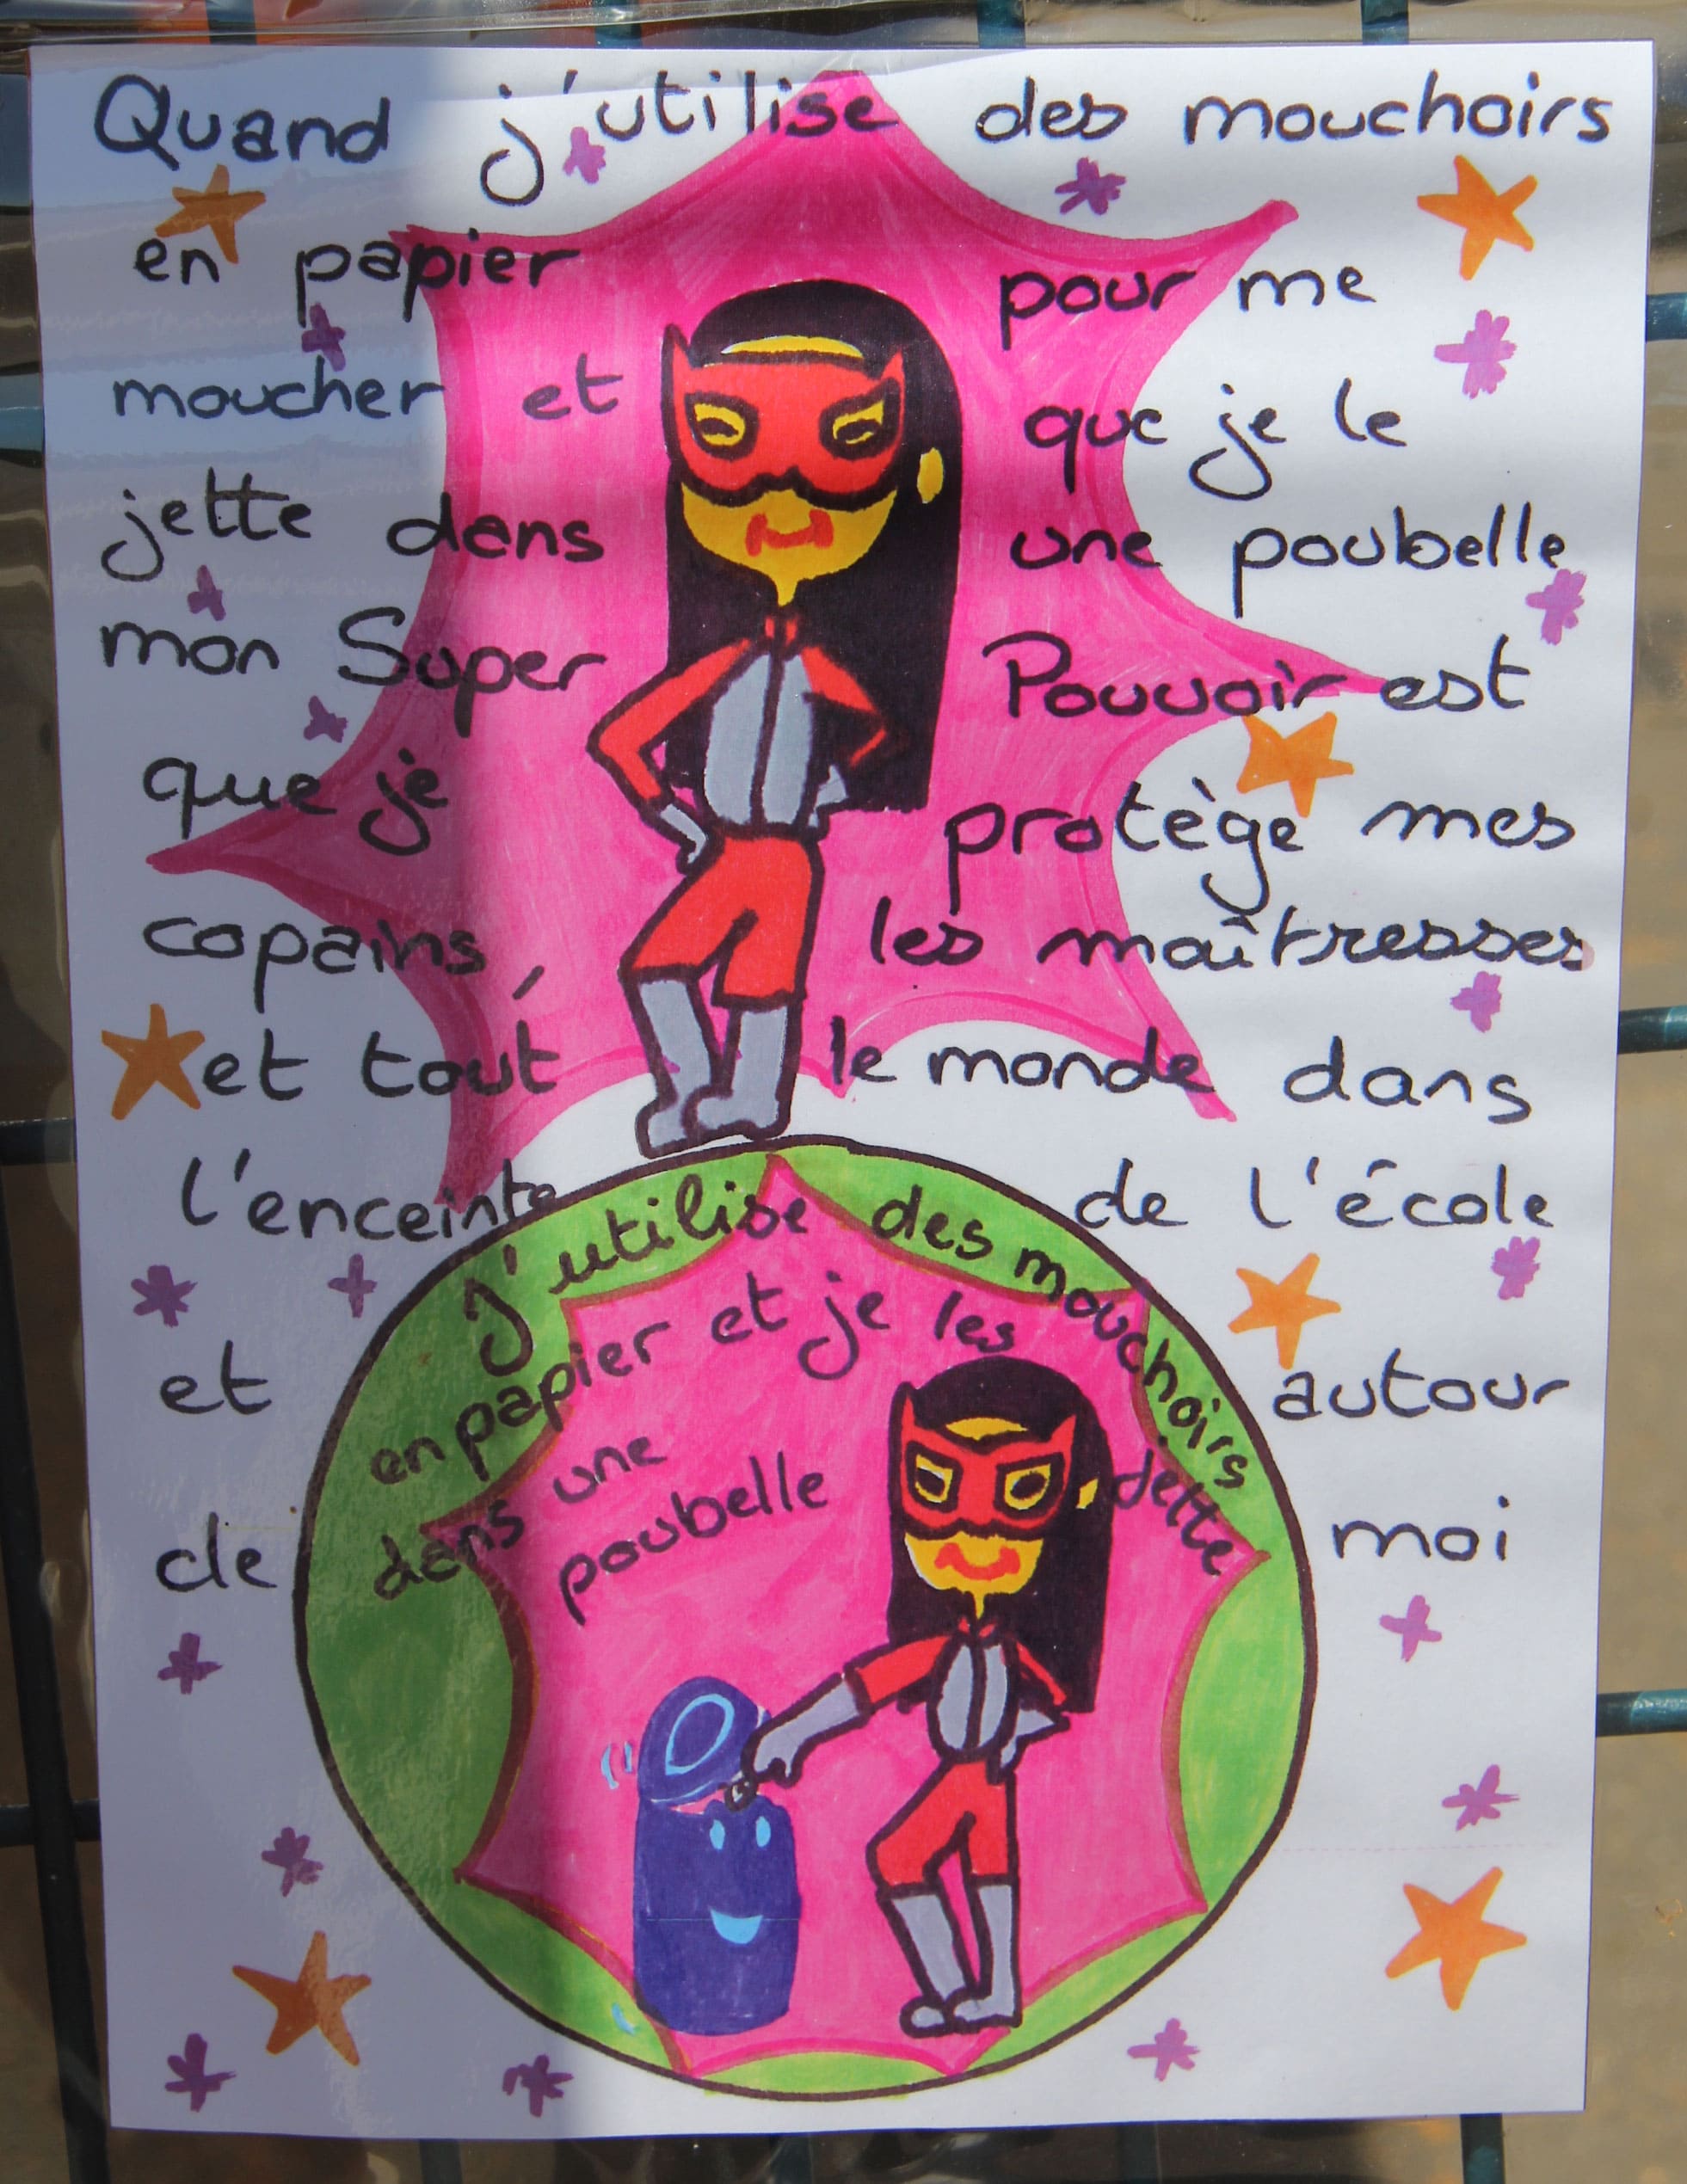 Quand j'utilise des mouchoirs
en papier pour me
moucher et que je le
jette dans une poubelle
mon Super Pouvoir est
que je protège mes
copains, les maîtresses
et tout le monde dans
l'enceinte de l'école
et autour
de moi
J'utilise des mouchoirs
en papier et je les jette
dans une
poubelle